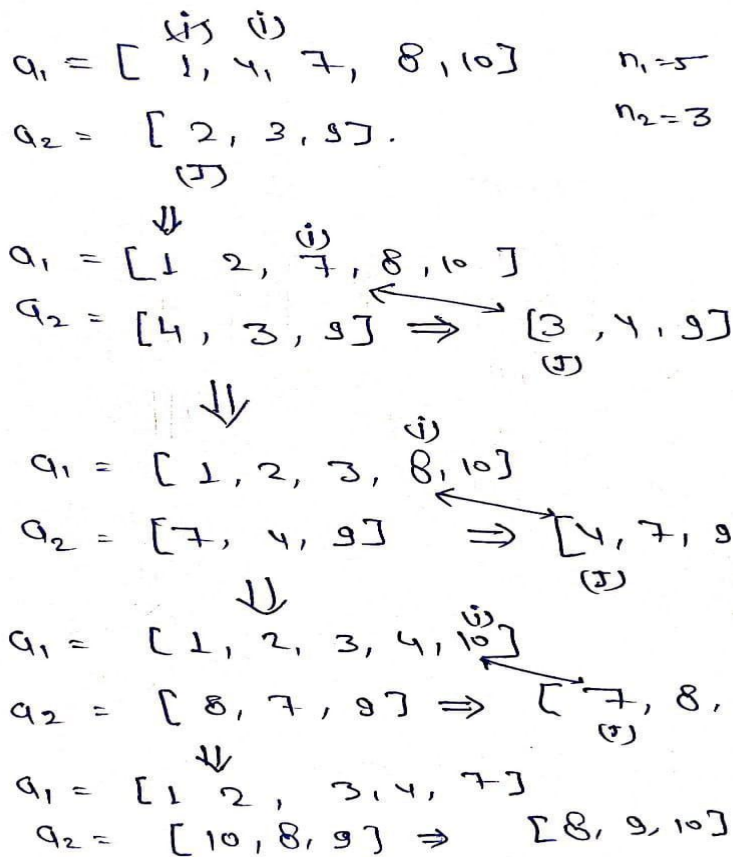 (i) (i)
a₁ = [ 1, 4, 7, 8, 10] n₁=5
a₂ = [ 2, 3, 9]. n₂=3
(J)
⇓
(i)
a₁ = [1 2, 7, 8, 10 ]
a₂ = [4, 3, 9] ⇒ [3, 4, 9]
(J)
⇓
(i)
a₁ = [ 1, 2, 3, 8, 10]
a₂ = [7, 4, 9] ⇒ [4, 7, 9
(J)
⇓
(i)
a₁ = [ 1, 2, 3, 4, 10]
a₂ = [ 8, 7, 9] ⇒ [ 7, 8,
(J)
⇓
a₁ = [1 2, 3, 4, 7]
a₂ = [10, 8, 9] ⇒ [8, 9, 10]